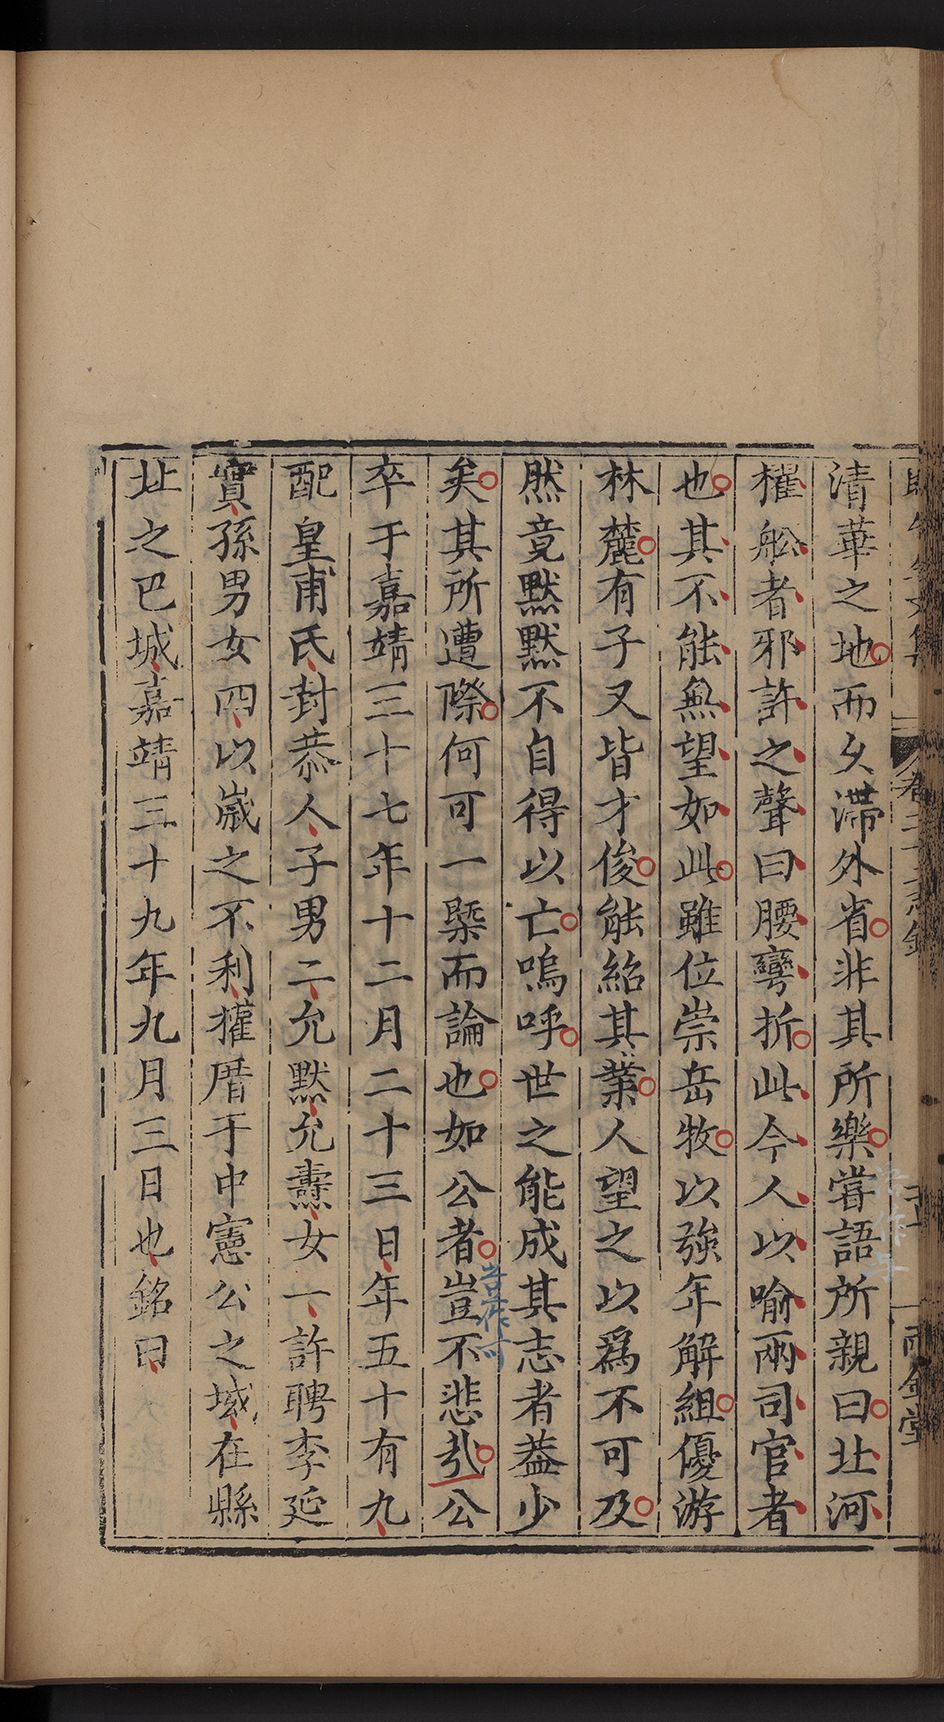 清華之地而久滯外省非其所樂嘗語所親曰北河
櫂舩者邪許之聲曰腰彎折此今人以喻兩司官者
也其不能無望如此雖位崇岳牧以強年解組優游
林麓有子又皆才俊能紹其業人望之以爲不可及
然竟默默不自得以亡嗚呼世之能成其志者葢少
矣其所遭際何可一槩而論也如公者豈不悲㢤公
卒于嘉靖三十七年十二月二十三日年五十有九
配皇甫氏封恭人子男二允默允燾女一許聘李延
實孫男女四以歲之不利權厝于中憲公之域在縣
北之巴城嘉靖三十九年九月三日也銘曰
雨金堂